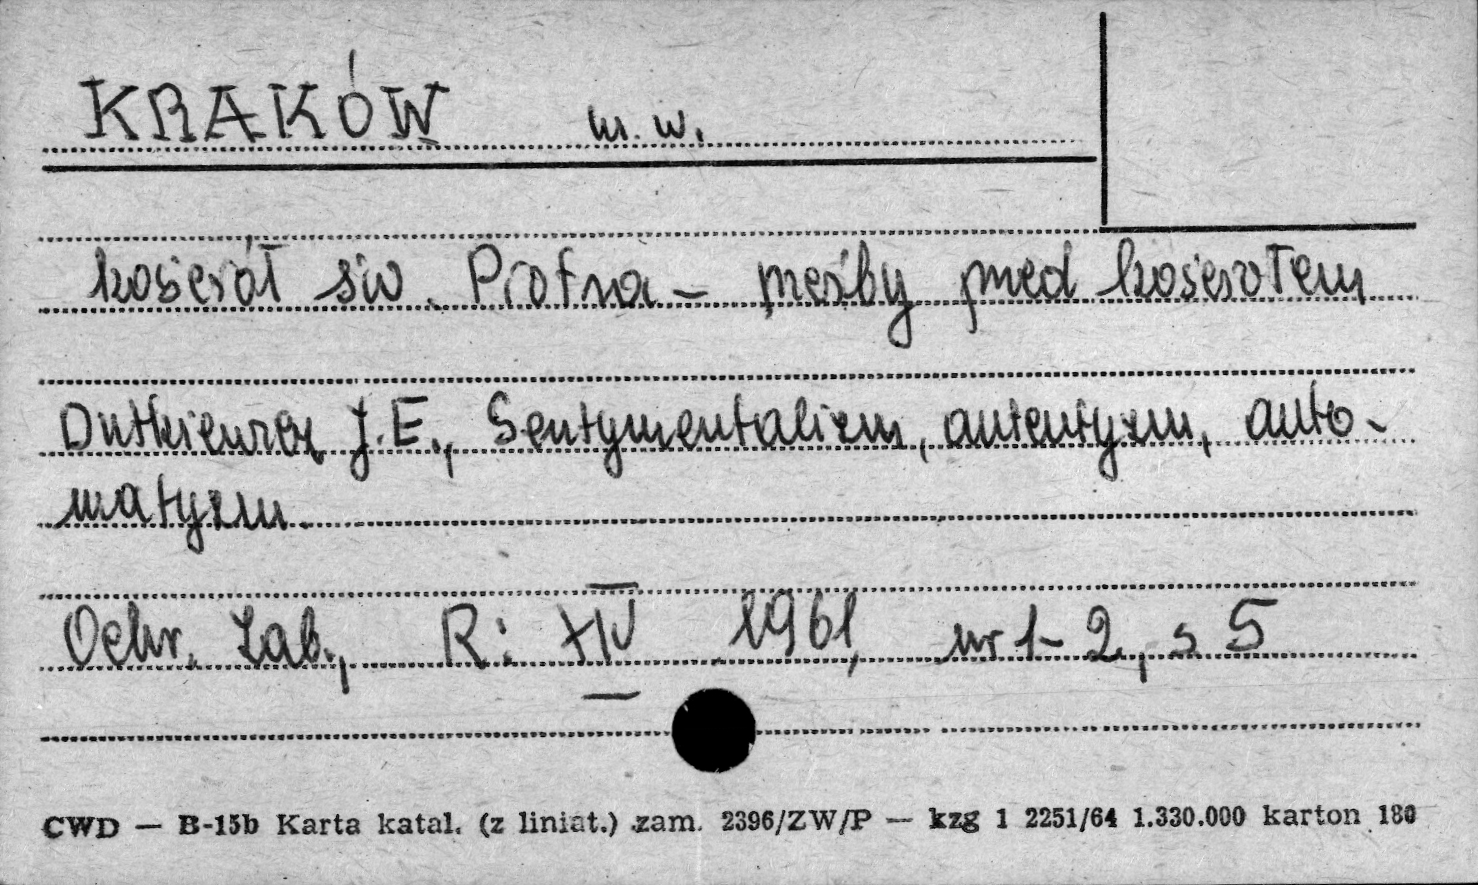 KRAKÓW m. w.
kościół św. Piotra – rzeźby przed kościołem
Dutkiewicz J.E., Sentymentalizm, autentyzm, auto-
matyzm.
Ochr. Zab., R: XIV 1961, nr 1-2, s 5
CWD — B-15b Karta katal. (z liniat.) zam. 2396/ZW/P — kzg 1 2251/64 1.330.000 karton 180